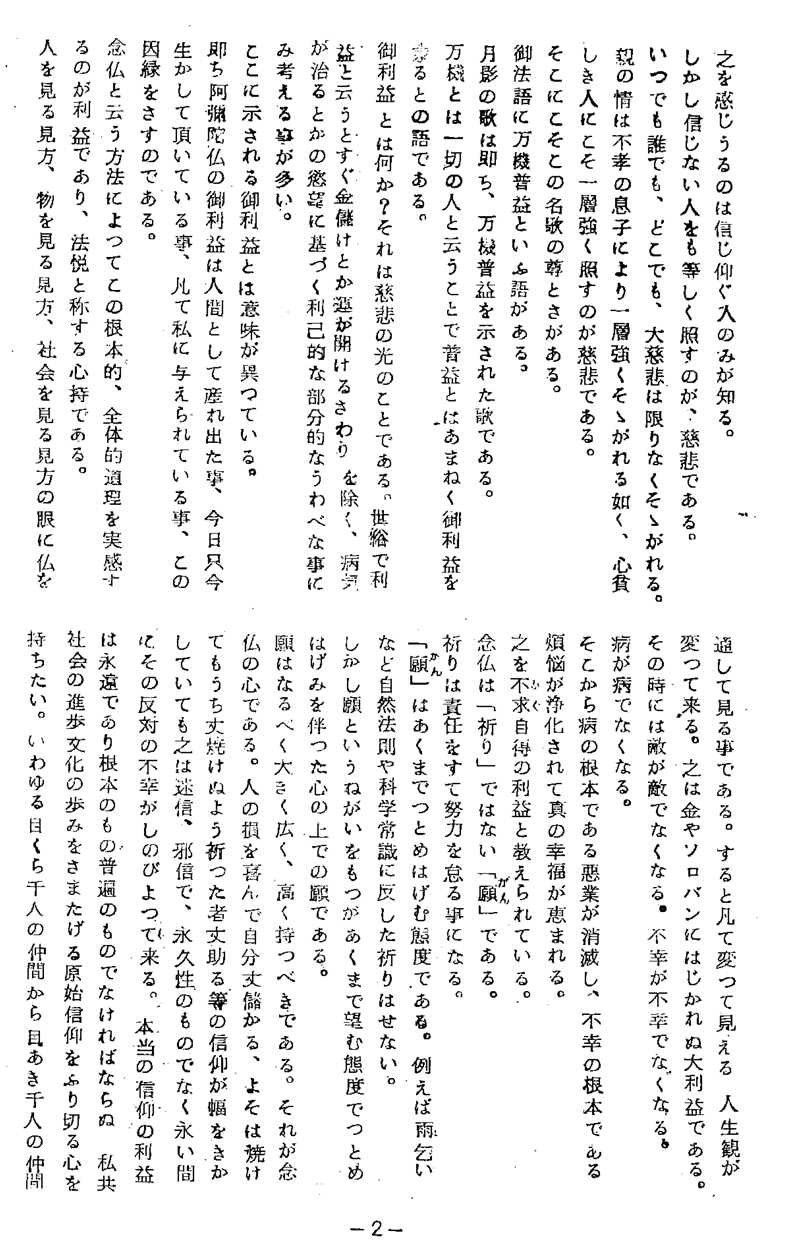 之を感じうるのは信じ仰ぐ人のみが知る。
しかし信じない人をも等しく照すのが、慈悲である。
いつでも誰でも、どこでも、大慈悲は限りなくそゝがれる。
親の情は不孝の息子により一層強くそゝがれる如く、心貧
しき人にこそ一層強く照すのが慈悲である。
そこにこそこの名歌の尊とさがある。
御法語に万機普益といふ語がある。
月影の歌は即ち、万機普益を示された歌である。
万機とは一切の人と云うことで普益とはあまねく御利益を
来るとの語である。
御利益とは何か？それは慈悲の光のことである。世俗で利
益と云うとすぐ金儲けとか運が開けるさわりを除く、病気
が治るとかの慾望に基づく利己的な部分的なうわべな事に
み考える事が多い。
ここに示される御利益とは意味が異つている。
即ち阿彌陀仏の御利益は人間として産れ出た事、今日只今
生かして頂いている事、凡て私に与えられている事、この
因縁をさすのである。
念仏と云う方法によつてこの根本的、全体的道理を実感す
るのが利益であり、法悦と称する心持である。
人を見る見方、物を見る見方、社会を見る見方の眼に仏を
通して見る事である。すると凡て変つて見える　人生観が
変つて来る。之は金やソロバンにはじかれぬ大利益である。
その時には敵が敵でなくなる。不幸が不幸でなくなる。
病が病でなくなる。
そこから病の根本である悪業が消滅し、不幸の根本である
煩悩が浄化されて真の幸福が恵まれる。
之を不求自得の利益と教えられている。
念仏は「祈り」ではない「願」である。
祈りは責任をすて努力を怠る事になる。
「願」はあくまでつとめはげむ態度である。例えば雨乞い
など自然法則や科学常識に反した祈りはせない。
しかし願というねがいをもつがあくまで望む態度でつとめ
はげみを伴つた心の上での願である。
願はなるべく大きく広く、高く持つべきである。それが念
仏の心である。人の損を喜んで自分丈儲かる、よそは焼け
てもうち丈焼けぬよう祈つた者丈助る等の信仰が幅をきか
していても之は迷信、邪信で、永久性のものでなく永い間
にその反対の不幸がしのびよつて来る。本当の信仰の利益
は永遠であり根本のもの普遍のものでなければならぬ　私共
社会の進歩文化の歩みをさまたげる原始信仰をふり切る心を
持ちたい。いわゆる目くら千人の仲間から目あき千人の仲間
－2－